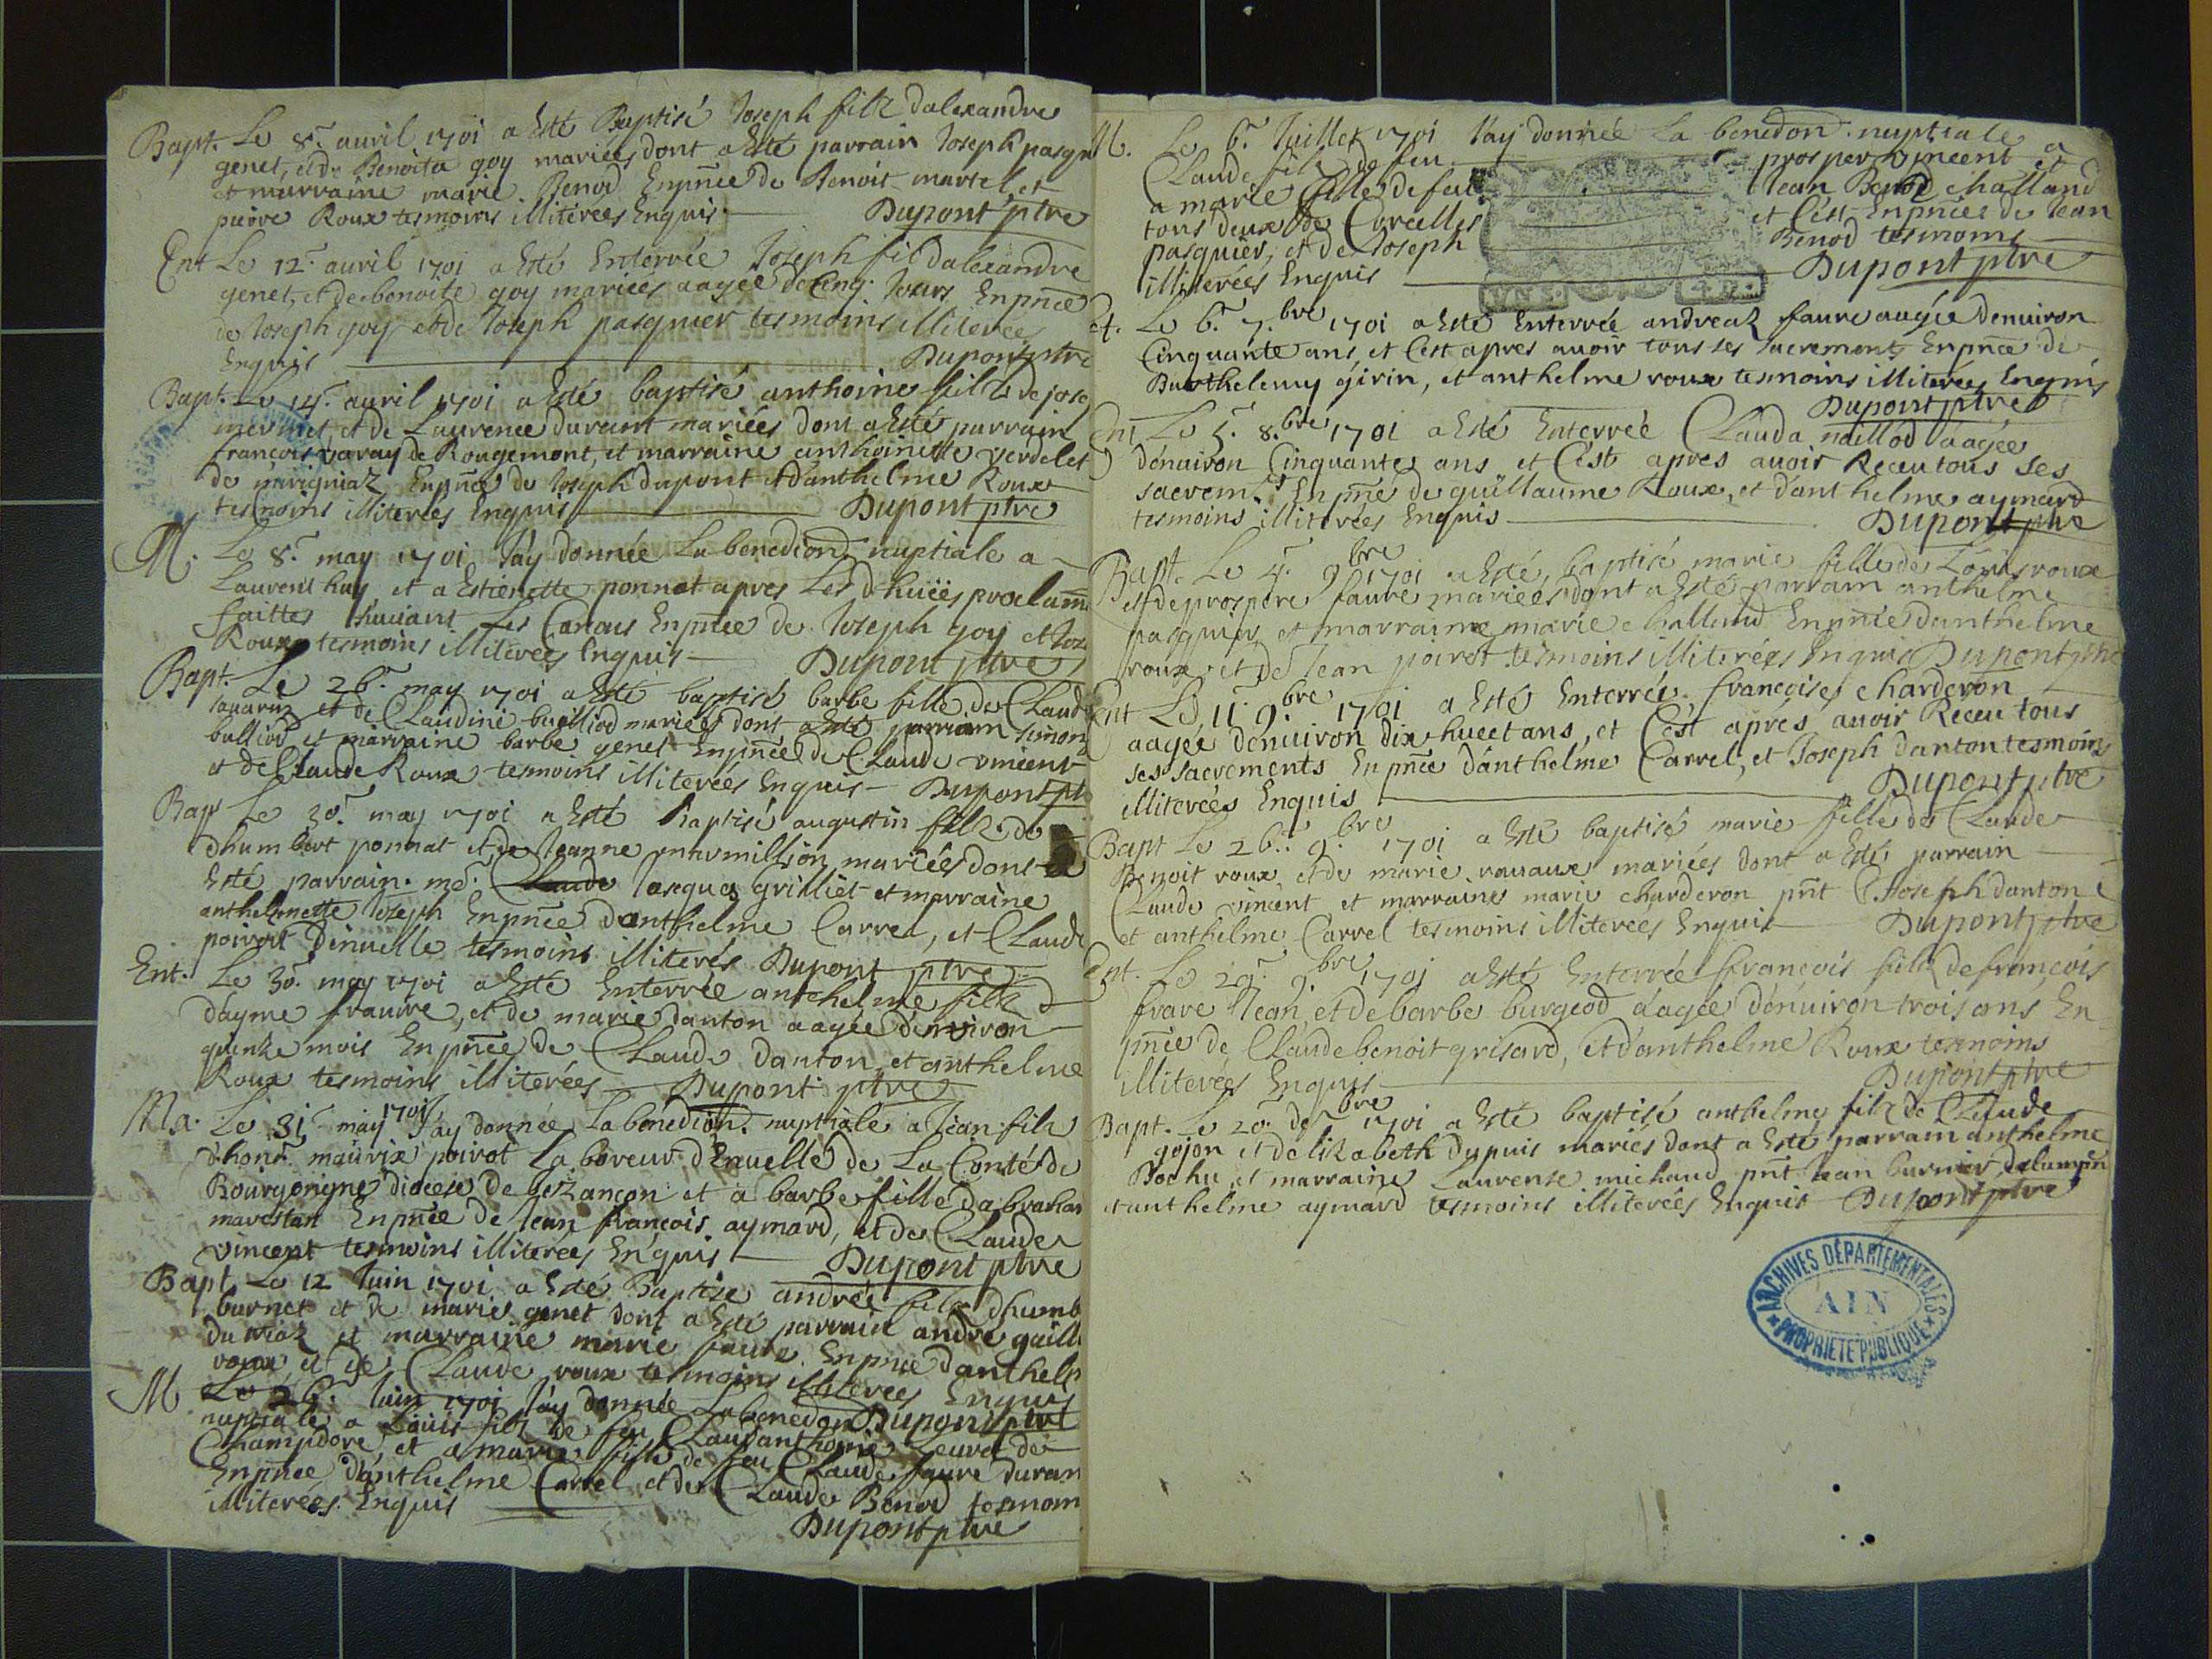 Bapt. Le 8.e auril 1701 a Esté Baptisé Joseph filz dalexandre
genet, et de Benoita goy mariées dont a Esté parrain Joseph pasqu
et marraine marie Benod Enpñce de Benoit martel et
pierre Roux tesmoins illiterées Enquis Dupont ptre
Ent Le 12.e auril 1701 a Esté Enterrée Joseph fil dalexandre
genet, et de benoite goy mariées aagée de Cinq Jours Enpñce
de Joseph goy et de Joseph pasquier tesmoins illiterées
Enquis Dupont ptre
Bapt. Le 14.e auril 1701 a Esté baptisé anthoine filz de jose
mermet, et de Laurence durant mariées dont a Esté parrain
françois varay de Rougemont, et marraine anthoinette verdelet
de mirigniaz Enpñce de Joseph dupont et danthelme Roux
tesmoins illiterées Enquis Dupont ptre
M. Le 8.e may 1701 Jay donnée La benedion nuptiale a
Laurent huy et a Estienette ponnat apres Les d. huées proclam
faittes suiuant Les Canons Enpñce de Joseph goy et Jos
Roux tesmoins illiterées Enquis Dupont ptre
Bapt. Le 26.e may 1701 a Esté baptisé barbe fille de Claud
sauarin et de Claudine buillod mariées dont a Esté parrain simon
balliod et marraine barbe genet Enpñce de Claude vincent
et de Claude Roux tesmoins illiterées Enquis Dupont pt
Bap Le 30.e may 1701 a Esté baptisé augustin filz de
dhumbert ponnat et de Jeanne marmillion mariées dont a
Esté parrain me. Jasques Grilliet et marraine
anthelmette Joseph Enpñce danthelme Carrel, et Claude
poirot Denuelle tesmoins illiterés Dupont ptre
Ent. Le 30. may 1701 a Esté Enterrée anthelme filz d
dayme fraure, et de marie danton aagée denviron
quinze mois Enpñce de Claude danton et anthelme
Roux tesmoins illiterées Dupont ptre
Ma. Le 31.e may 1701 Jay donnée La benedion nuptiale a Jean filz
dhonr. maurix poirot Laboreur dEnuelle de La Conté de
Bourgongne diocese de beszançon et a barbe fille dabraham
marestan Enpñce de Jean françois aymard, et de Claude
vincent tesmoins illiterées Enquis Dupont ptre
Bapt Le 12 Juin 1701 a Esté Baptise andrée filz dhumb
burnet et de marie genet dont a Esté parrain andre gaill
du viaz et marraine marie faure Enpñce danthel
roux et de Claude roux tesmoins illiterées Enquis
M Le 26.e Juin 1701 Jay donnée La benedon Dupont ptre
nuptiale a Louis filz de feu Claudanthoine Leuvet de
Champdore, et a marie fille de feu Claude faure duran
Enpñce danthelme Carrel et de Claude Benod tesmoin
illiterées Enquis
Dupont ptre
M. Le 6.e Juillet 1701 Jay donnée La benedon nuptiale a
Claude filz de feu prosper vincent et
a marie fille de feu Jean Benod challand
tous deux de Corcelles et Cest Enpñces de Jean
pasquier, et de Joseph Benod tesmoins
illiterées Enquis Dupont ptre
Et. Le 6.e 7.bre 1701 a Esté Enterrée andreaz faure aagée denuiron
Cinquante ans, et Cest apres auoir tous ses sacrements Enpñce de
Barthelemy girin, et anthelme roux tesmoins illiterées Enquis
Dupont ptre
Ent Le 5.e 8.bre 1701 a Esté Enterrée Clauda naillod aagée
denuiron Cinquantes ans et Cest apres auoir Receu tous ses
sacrem.ts Enpñce de guillaume Roux, et danthelme aymard
tesmoins illiterées Enquis Dupont ptre
Bapt. Le 4.e 9.bre 1701 a Esté baptisé marie fille de Louis roux
et de prospere faure mariées dont a Esté parrain anthelme
pasquier et marraine marie challand Enpñce danthelme
roux et de Jean poirot tesmoins illiterées Enquis Dupont ptre
Ent Le 11.e 9.bre 1701 a Esté Enterrée françoise charderon
aagée denuiron dix hueet ans, et Cest aprés auoir Receu tous
ses sacrements Enpñce danthelme Carrel, et Joseph danton tesmoins
illiterées Enquis Dupont ptre
Bapt Le 26.e 9.bre 1701 a Esté baptisé marie fille de Claude
Benoit roux et de marie rauaux mariées dont a Esté parrain
Claude vincent et marraine marie charderon pñt Joseph danton
et anthelme Carrel tesmoins illiterées Enquis Dupont ptre
Ent. Le 29.e 9.bre 1701 a Esté Enterrée françois filz de françois
frare Jean, et de barbe burgeod aagée denuiron trois ans En
pñce de Claude benoit grisard, et danthelme Roux tesmoins
illiterées Enquis Dupont ptre
Bapt. Le 20.e de bre 1701 a Esté baptisé anthelme filz de Claude
gojon et delizabeth dupuis mariés dont a Esté parrain anthelme
Bochu et marraine Laurense michaud pñt Jean burnier
et anthelme aymard tesmoins illiterées Enquis Dupont ptre
ARCHIVES DÉPARTEMENTALES
AIN
PROPRIETE PUBLIQUE